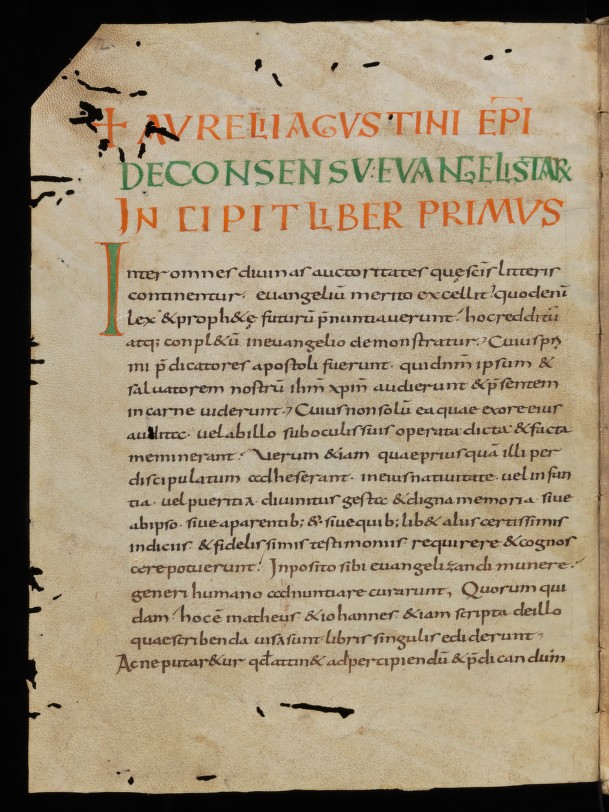 ✝ AVRELII AGVSTINI EP̅I
DE CONSENSV: EVANGELISTARꝜ
IN CIPIT LIBER PRIMVS
Inter omnes diuinas auctoritates quę sc̅is litteris
continentur· euangeliū merito excellit; quod eni̅
lex & proph&ę futurū p̅nuntiauerunt· hoc redditū
atq; conpl&ū in euangelio demonstratur; Cuius p̅
mi p̅dicatores apostoli fuerunt· qui dn̅m ipsum &
saluatorem nostrū ihm̅ xp̅m audierunt & p̅sentem
in carne uiderunt; Cuius non solū ea quae ex ore eius
audita· uel ab illo sub oculis suis operata dicta & facta
meminerant· Verum &iam quae prius quā illi per
discipulatum adheserant· in eius natiuitate· uel infan
tia· uel pueritia· diuinitus gesta & digna memoria· siue
ab ipso· siue a parentib; &· siue quib; lib& aliis certissimis
indiciis· & fidelissimis testimoniis· requirere & cognos
cere potuerunt· Inposito sibi euangelizandi munere·
generi humano adnuntiare curarunt, Quorum qui
dam· hoc ē matheus & iohannes &iam scripta de illo
quae scribenda uisa sunt libris singulis ediderunt·
Ac ne putar&ur qd̅ attin& ad percipiendū & p̅dicandum